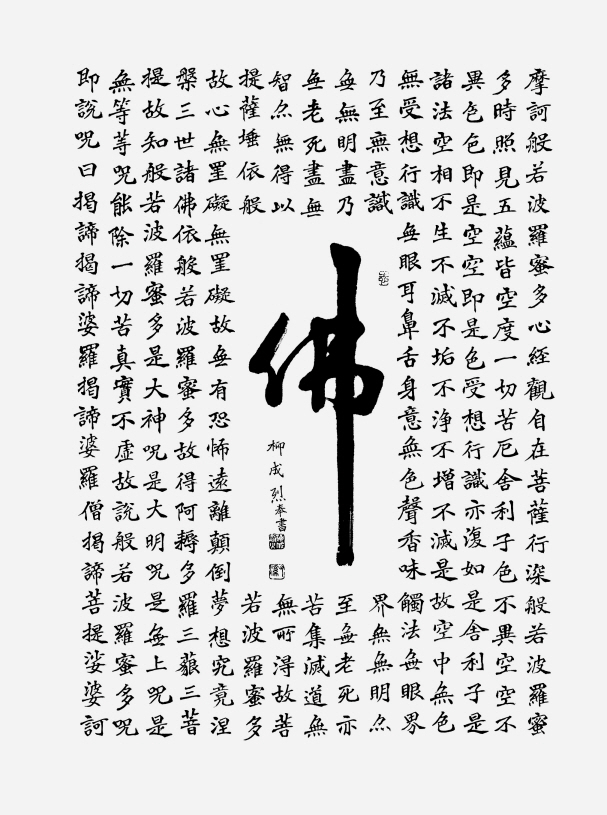 摩訶般若波羅蜜多心經觀自在菩薩行深般若波羅蜜
多時照見五蘊皆空度一切苦厄舍利子色不異空空不
異色色即是空空即是色受想行識亦復如是舍利子是
諸法空相不生不滅不垢不淨不增不減是故空中無色
無受想行識無眼耳鼻舌身意無色聲香味觸法無眼界
乃至無意識
界無無明亦
無無明盡乃
至無老死亦
無老死盡無
苦集滅道無
智亦無得以
無所得故菩
提薩埵依般
若波羅蜜多
故心無罣礙無罣礙故無有恐怖遠離顛倒夢想究竟涅
槃三世諸佛依般若波羅蜜多故得阿耨多羅三藐三菩
提故知般若波羅蜜多是大神呪是大明呪是無上呪是
無等等呪能除一切苦真實不虛故說般若波羅蜜多呪
即說呪曰揭諦揭諦婆羅揭諦婆羅僧揭諦菩提娑婆訶
佛
柳成烈奉書